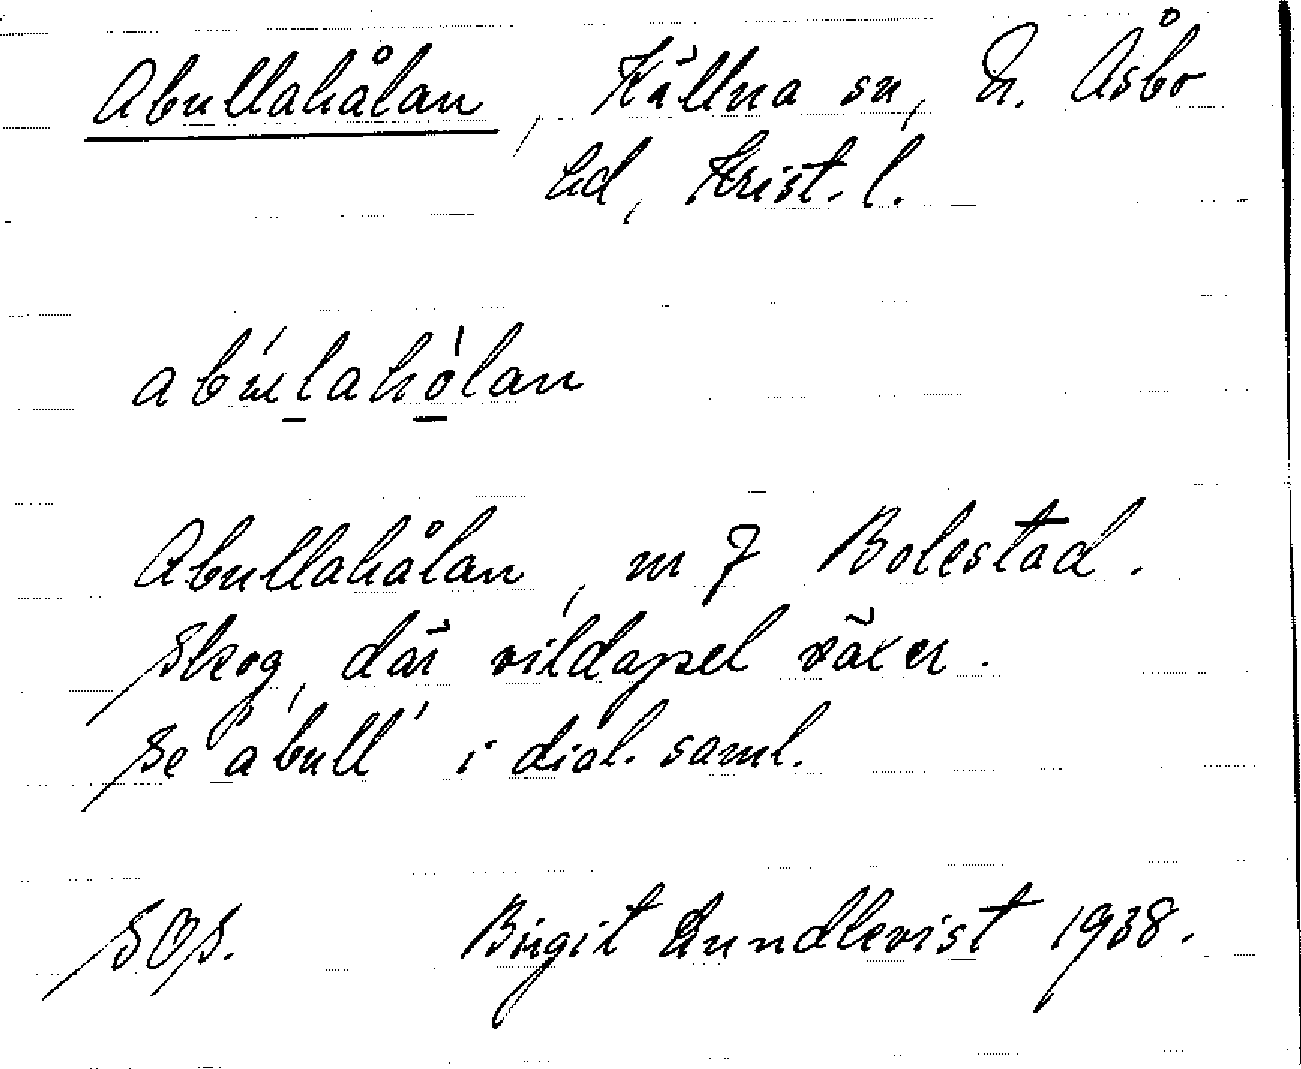 Abullahålan, Källna sn, N. Åsbo
hd, Krist. l.
abúlahólan
Abullahålan, nr 7 Bolestad.
Skog, där vildapel växer.
Se "abull" i dial. saml.
SOS. Birgit Lundkvist 1938.